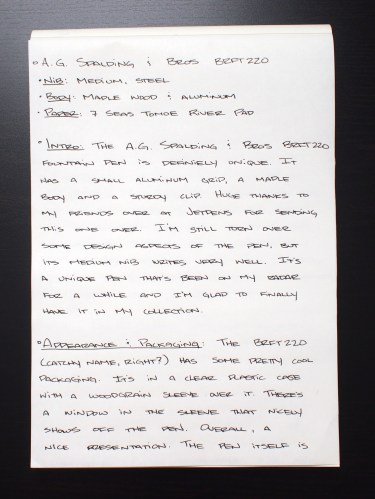 • A.G. Spalding & Bros BRFT220
• Nib: Medium, Steel
• Body: Maple Wood & Aluminum
• Paper: 7 Seas Tomoe River Pad
• Intro: The A.G. Spalding & Bros BRFT220
fountain pen is definiely unique. It
has a small aluminum grip, a maple
body and a sturdy clip. Huge thanks to
my friends over at JetPens for sending
this one over. I'm still torn over
some design aspects of the pen, but
its medium nib writes very well. It's
a unique pen that's been on my radar
for a while and I'm glad to finally
have it in my collection.
• Appearance & Packaging: The BRFT220
(catchy name, right?) has some pretty cool
packaging. It's in a clear plastic case
with a woodgrain sleeve over it. There's
a window in the sleeve that nicely
shows off the pen. Overall, a
nice presentation. The pen itself is